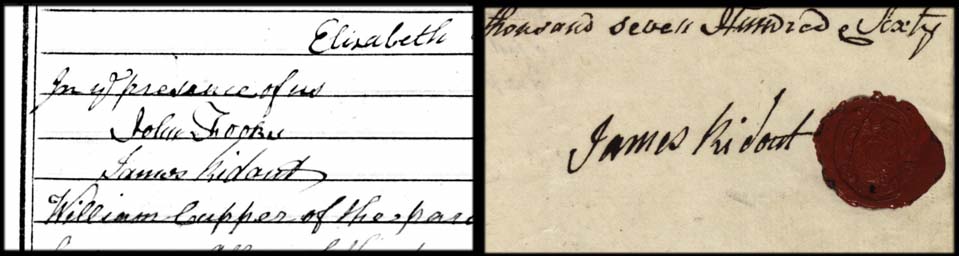 Elizabeth
In yͤ presance of us
John Fooks
James Ridout
William Cupper of the para
thousand seven Hundred & Sixty
James Ridout